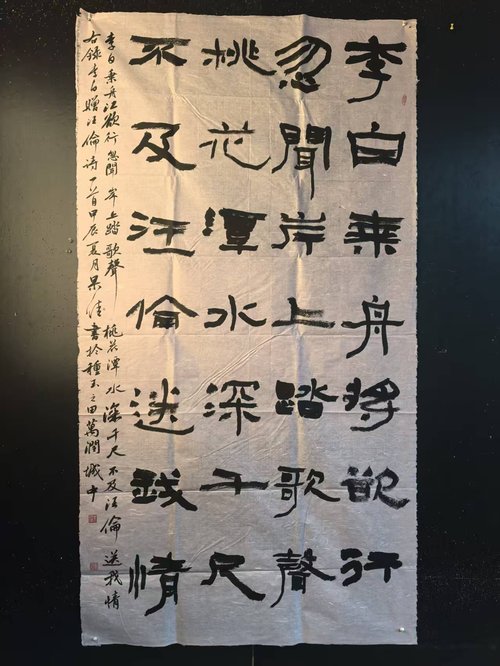 李白乘舟将欲行
忽聞岸上踏歌聲
桃花潭水深千尺
不及汪倫送我情
李白乘舟江欲行 忽聞岸上踏歌聲 桃花潭水深千尺 不及汪倫送我情
右録李白贈汪倫詩一首甲辰夏月杲清書於種玉之田萬潤城中